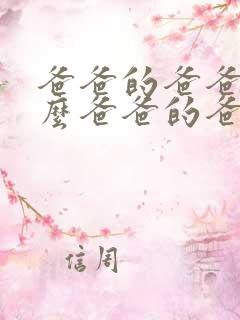 爸爸的爸爸
麼爸爸的爸
信周